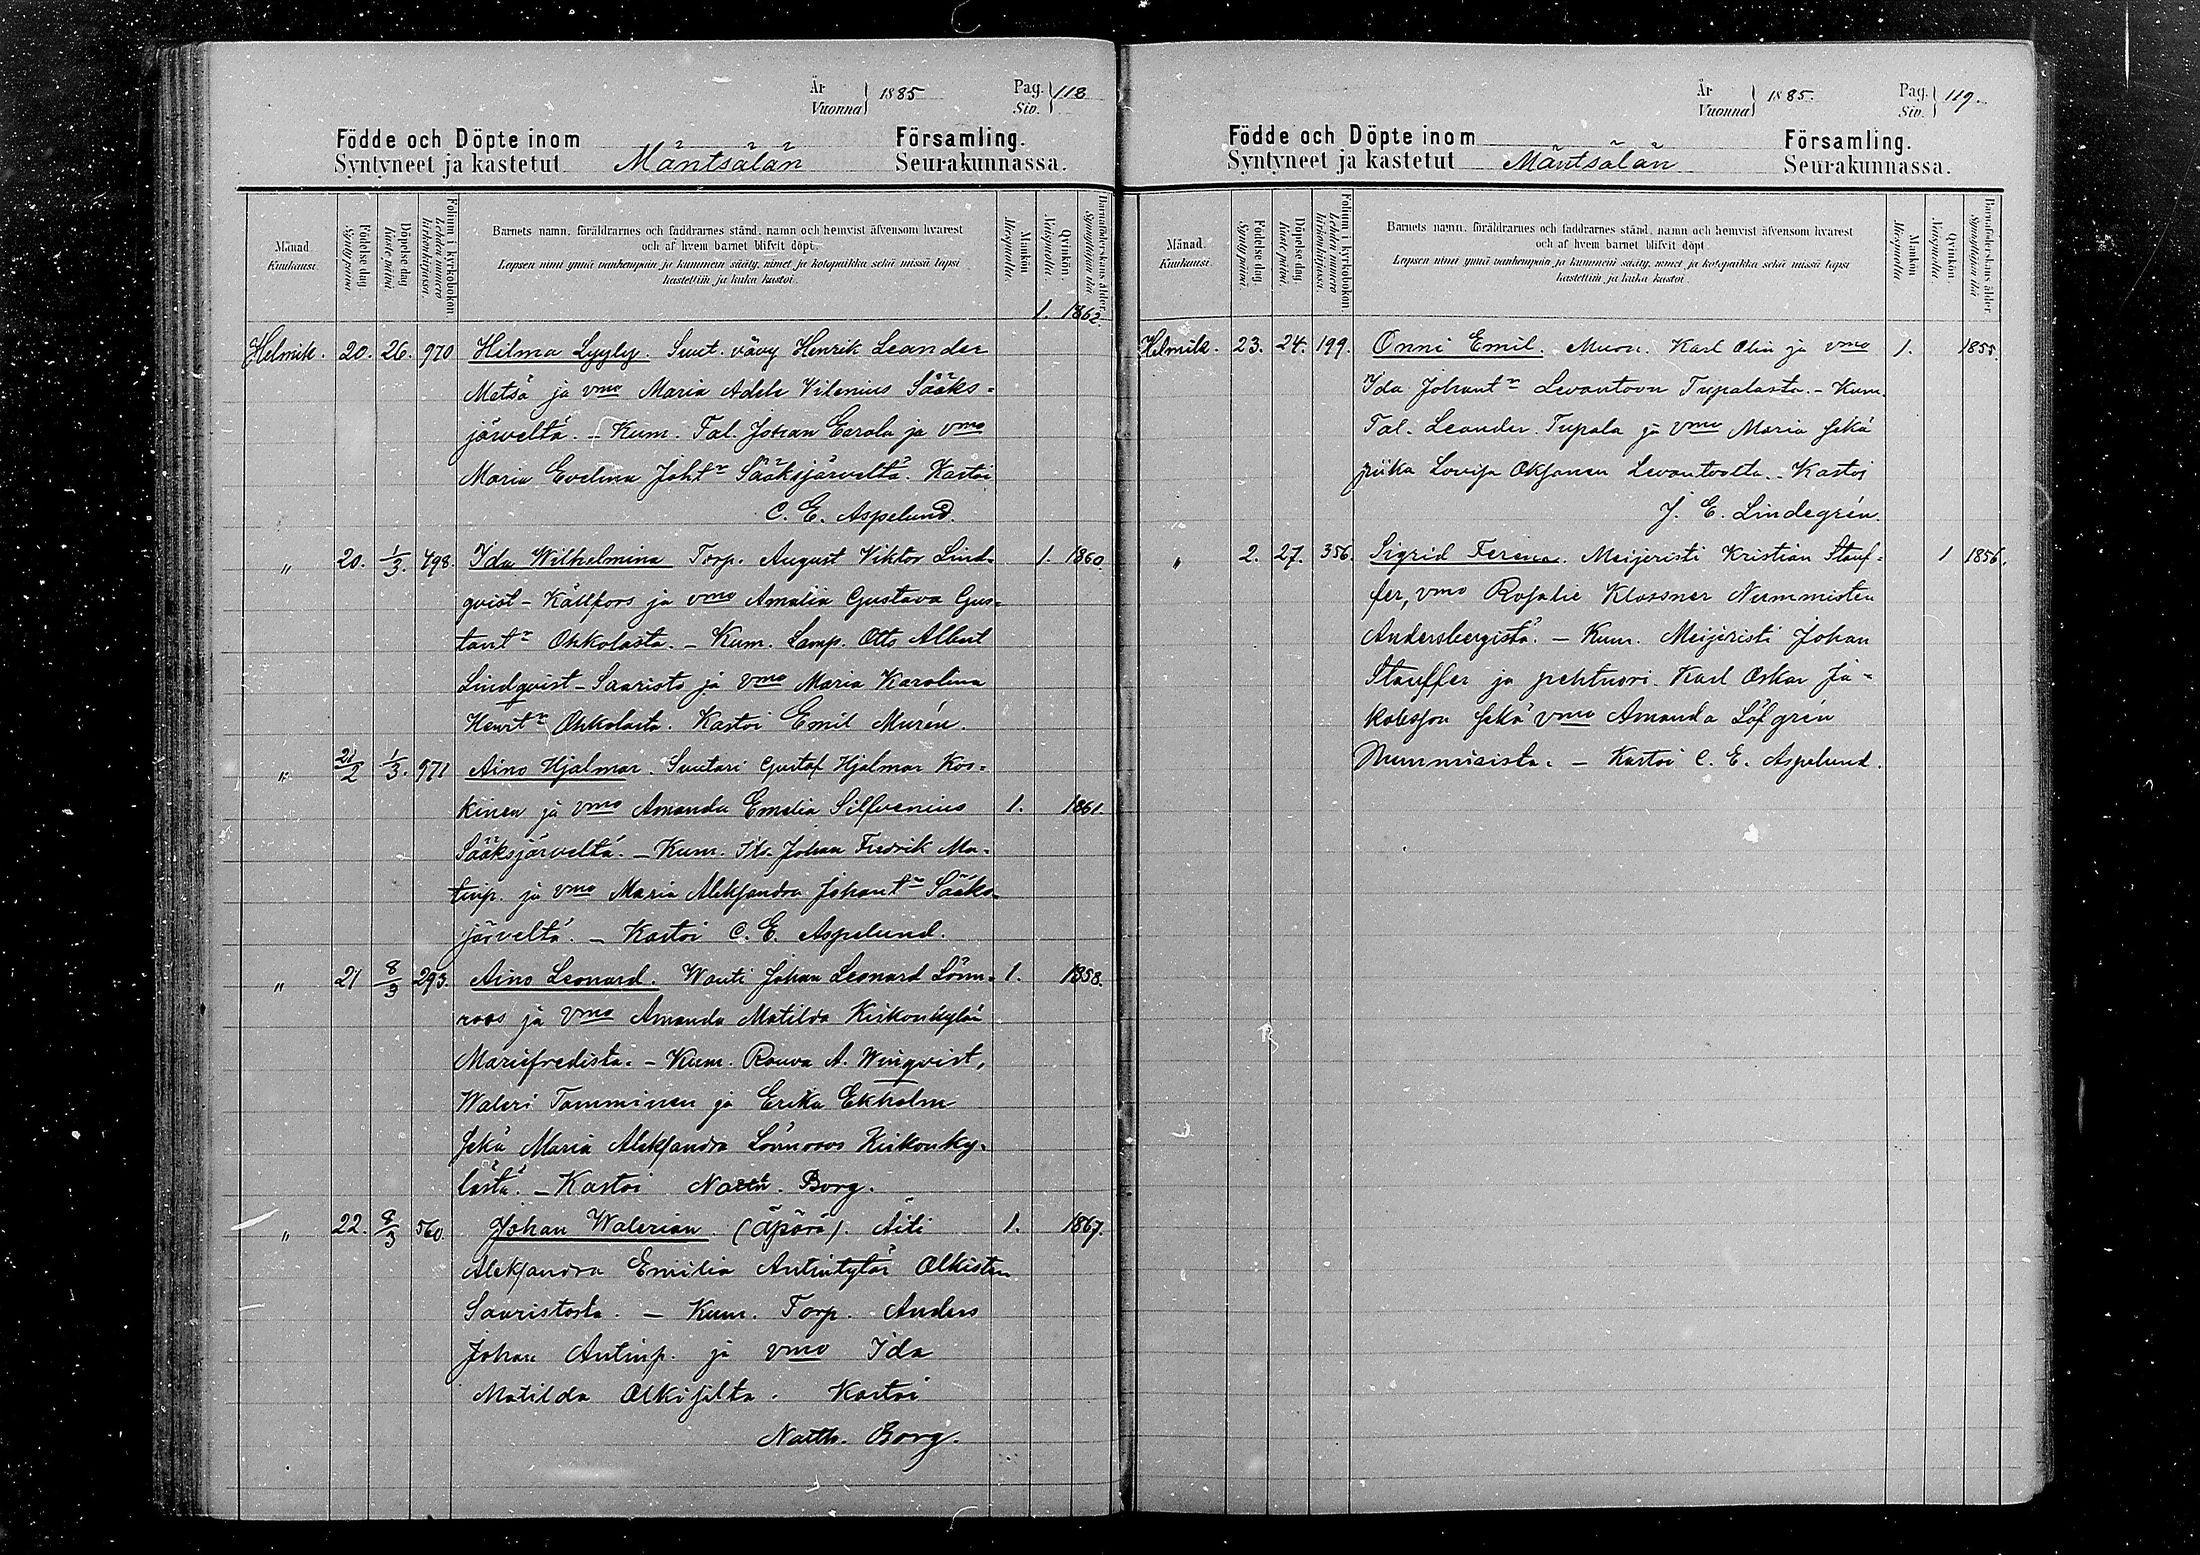 År
Vuonna } 1885
Pag.
Siv. } 118
Födde och Döpte inom
Syntyneet ja kastetut Mäntsälän
Församling.
Seurakunnassa.
Månad.
Kuukausi.
Födelsedag.
Syntymäpäivä
Döpelsedag.
Kastepäivä.
Folium i kyrkoboken.
Lehden numero kirkonkirjassa.
Barnets namn, föräldrarnes och faddrarnes stånd, namn och hemvist äfvensom hvarest
och af hvem barnet blifvit döpt.
Lapsen nimi ynnä vanhempain ja kummein sääty, nimet ja kotopaikka sekä missä lapsi
kastettiin ja kuka kastoi.
Mankön.
Miespuolia.
Qvinkön.
Vaispuolia.
Barnaföderskans ålder
Synnyttäjän ikä
1. 1862.
Helmik. 20. 26. 970 Hilma Lyyly. Suut. vävy Henrik Leander
Metsä ja vmo Maria Adele Vilenius Sääks-
järveltä. – Kum. Tal. Johan Eerola ja vmo
Maria Evelina Joht:r Sääksjärveltä. Kastoi
C. E. Aspelund.
" 20. 1/3. 498. Ida Wilhelmina Torp. August Viktor Lind- 1. 1860.
qvist - Källfors ja vmo Amalia Gustava Gus-
tavt:r Ohkolasta. – Kum. Lamp. Otto Albert
Lindqvist - Saaristo ja vmo Maria Karolina
Henrt:r Ohkolasta. Kastoi Emil Murén.
" 21/2 1/3. 971 Aino Hjalmar. Suutari Gustaf Hjalmar Kos-
kinen ja vmo Amanda Emelia Silfvenius 1. 1861.
Sääksjärveltä. – Kum. Johan Fredrik Ma-
tinp. ja vmo Maria Aleksandra Johant:r Sääks-
järveltä. – Kastoi C. E. Aspelund.
" 21 8/3 293. Aino Leonard. Wouti Johan Leonard Lönn- 1. 1858.
roos ja vmo Amanda Matilda Kirkonkylän
Mariefredista. – Kum. Rouva A. Winqvist,
Waleri Tamminen ja Erika Ekholm
sekä Maria Aleksandra Lönnroos Kirkonky-
lästä. – Kastoi Nath. Borg.
" 22. 8/3 560. Johan Walerian. (äpärä). Äiti 1. 1867.
Aleksandra Emilia Antintytär Olkisten
Saaristosta. – Kum. Torp. Anders
Johan Antinp. ja vmo Ida
Matilda Olkisilta. Kastoi
Nath. Borg.
År
Vuonna } 1885.
Pag.
Siv. } 119.
Födde och Döpte inom
Syntyneet ja kastetut Mäntsälän
Församling.
Seurakunnassa.
Månad.
Kuukausi.
Födelsedag.
Syntymäpäivä.
Döpelsedag.
Kastepäivä.
Folium i kyrkoboken.
Lehden numero kirkonkirjassa.
Barnets namn, föräldrarnes och faddrarnes stånd, namn och hemvist äfvensom hvarest
och af hvem barnet blifvit döpt.
Lapsen nimi ynnä vanhempain ja kummein sääty, nimet ja kotopaikka sekä missä lapsi
kastettiin ja kuka kastoi.
Mankön.
Miespuolia.
Qvinkön.
Vaispuolia.
Barnaföderskans ålder
Synnyttäjän ikä
Helmik. 23. 24. 199. Onni Emil. Muon. Karl Olin ja vmo 1. 1855.
Ida Johant:r Levantoon Tupalasta. – Kum.
Tal. Leander Tupala ja vmo Maria sekä
piika Lovisa Oksanen Levantoolta. – Kastoi
J. E. Lindegrén.
" 2. 27. 356. Sigrid Ferena. Meijeristi Kristian Stauf- 1 1856.
fer, vmo Rosalie Klossner Nummisten
Andersbergistä. – Kum. Meijeristi Johan
Stauffer ja pehtuori Karl Oskar Ja-
kobsson sekä vmo Amanda Löfgrén
Nummisista. – Kastoi C. E. Aspelund.